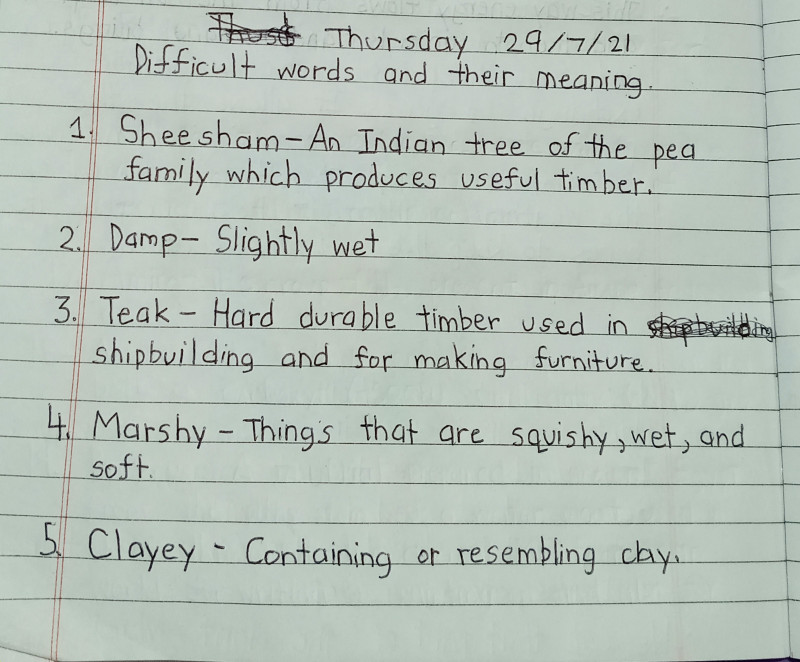 Thursday 29/7/21
Difficult words and their meaning.
1. Sheesham - An Indian tree of the pea
family which produces useful timber.
2. Damp - Slightly wet
3. Teak - Hard durable timber used in shipbuilding
shipbuilding and for making furniture.
4. Marshy - Things that are squishy, wet, and
soft.
5. Clayey - Containing or resembling clay.